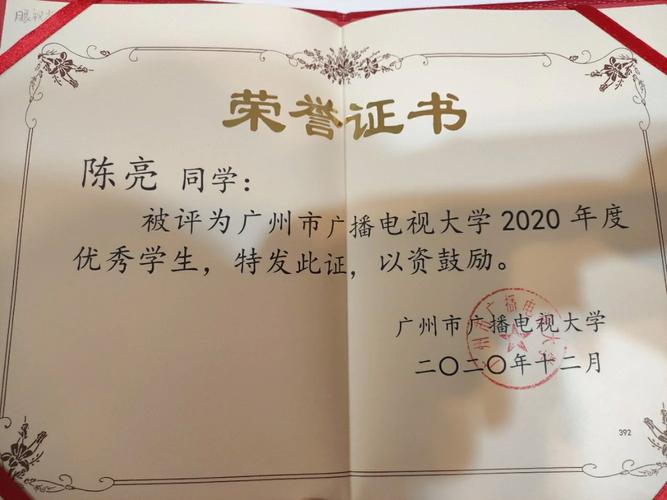 荣誉证书
陈亮 同学：
被评为广州市广播电视大学2020年度
优秀学生，特发此证，以资鼓励。
广州市广播电视大学
二〇二〇年十二月
广州市广播电视大学
392